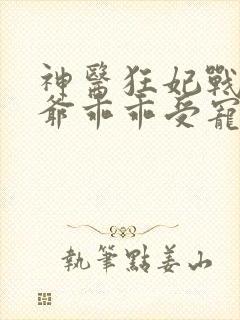 神醫狂妃戰
爺乖乖受寵
執筆點姜山